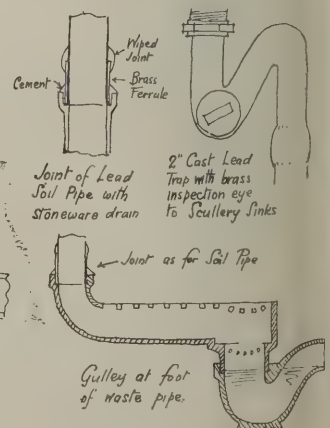 Wiped
Joint
Cement
Brass
Ferrule
Joint of Lead
Soil Pipe with
stoneware drain
2" Cast Lead
Trap with brass
inspection eye
to Scullery Sinks
Joint as for Soil Pipe
Gulley at foot
of waste pipe.